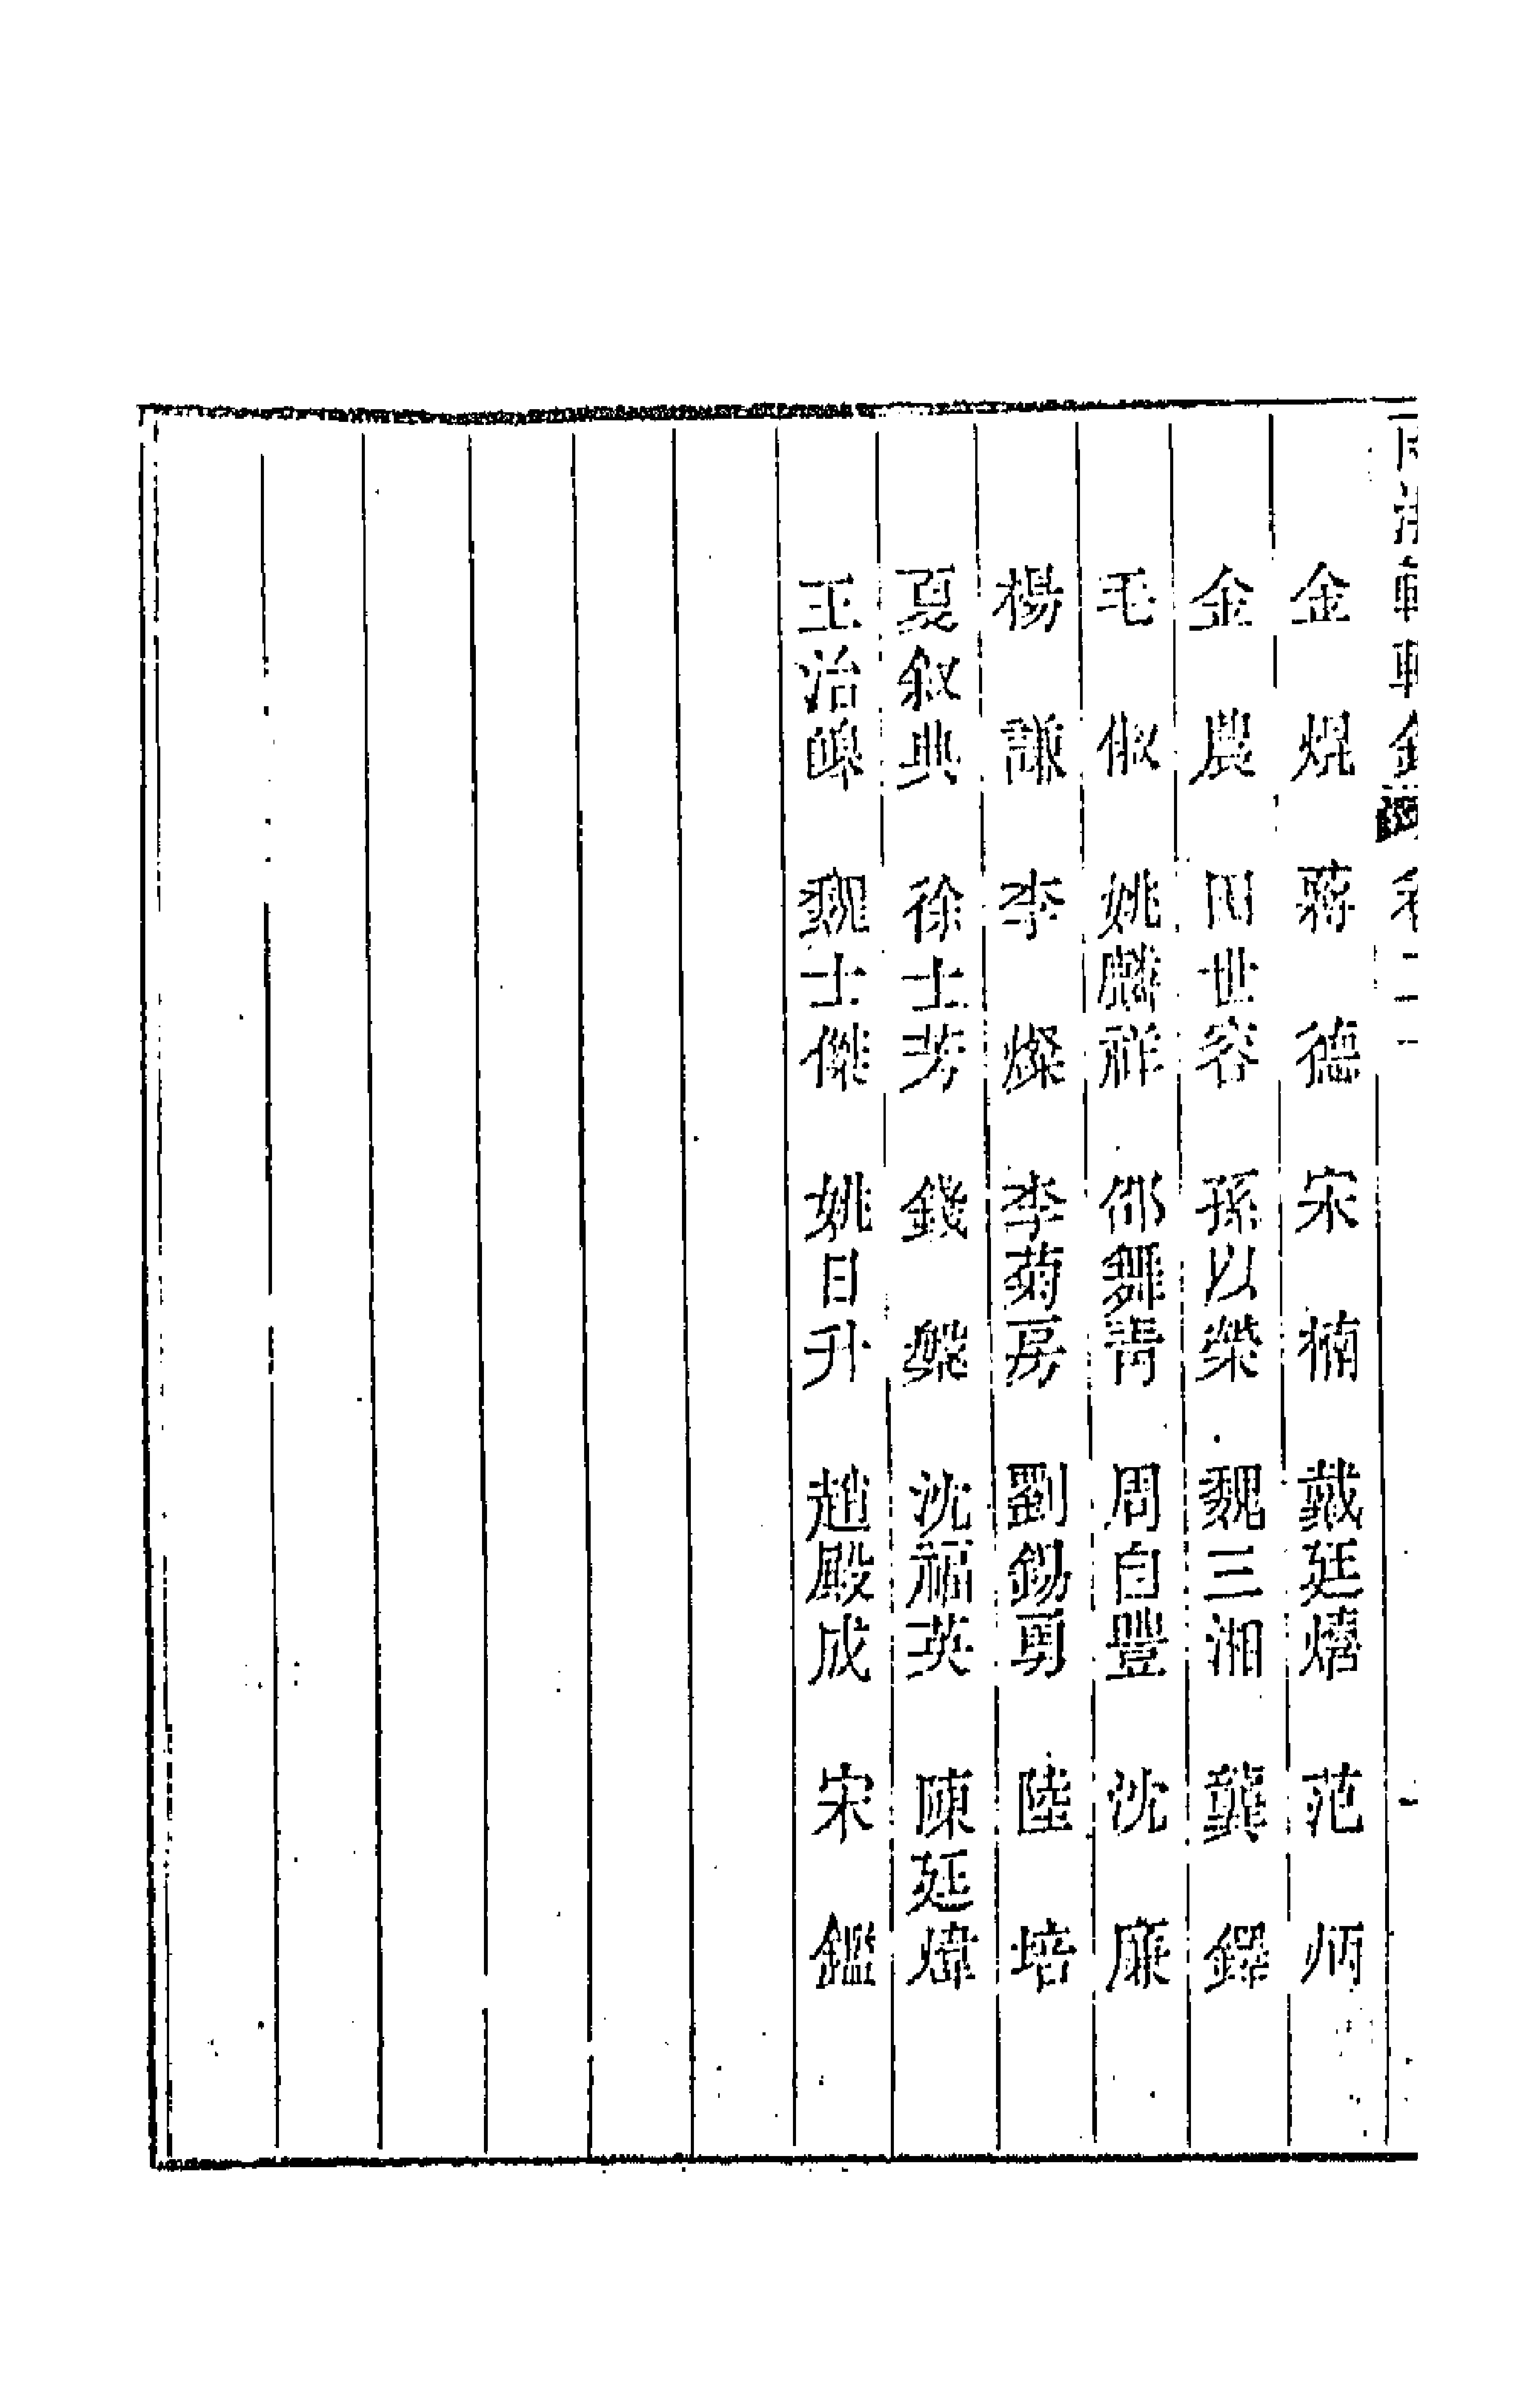 金焜　蔣德　宋楠　戴廷熺　范炳
金農　田世容　孫以榮　魏三湘　龔鐸
毛俶　姚麟祥　邵舞靑　周自豐　沈廉
楊謙　李燦　李菊房　劉錫勇　陸培
夏叙典　徐士芳　錢槃　沈福英　陳廷煒
王治皥　魏士傑　姚日升　趙殿成　宋鑑